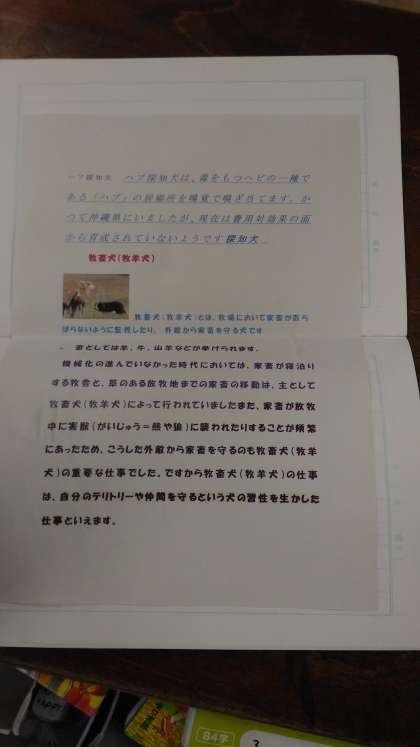 ハブ探知犬 ハブ探知犬は、毒をもつヘビの一種で
ある「ハブ」の居場所を嗅覚で嗅ぎ当てます。か
つて沖縄県にいましたが、現在は費用対効果の面
から育成されていないようです探知犬
牧畜犬(牧羊犬)
牧畜犬(牧羊犬)とは、牧場において家畜が散ら
ばらないように監視したり、外敵から家畜を守る犬です
畜としては羊、牛、山羊などが挙げられます。
機械化の進んでいなかった時代においては、家畜が寝泊り
する牧舎と、草のある放牧地までの家畜の移動は、主として
牧畜犬(牧羊犬)によって行われていましたまた、家畜が放牧
中に害獣(がいじゅう=熊や狼)に襲われたりすることが頻繁
にあったため、こうした外敵から家畜を守るのも牧畜犬(牧羊
犬)の重要な仕事でした。ですから牧畜犬(牧羊犬)の仕事
は、自分のテリトリーや仲間を守るという犬の習性を生かした
仕事といえます。
84字
3